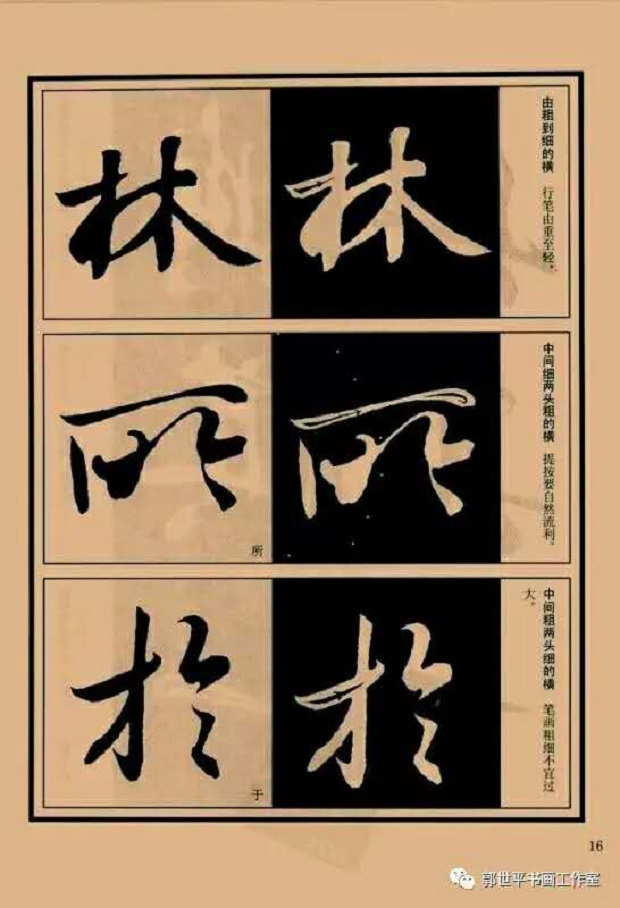 由粗到细的横　行笔由重至轻。
林
林
中间细两头粗的横　提按要自然流利。
所
所
所
中间粗两头细的横　笔画粗细不宜过
大。
於
於
于
16
郭世平书画工作室